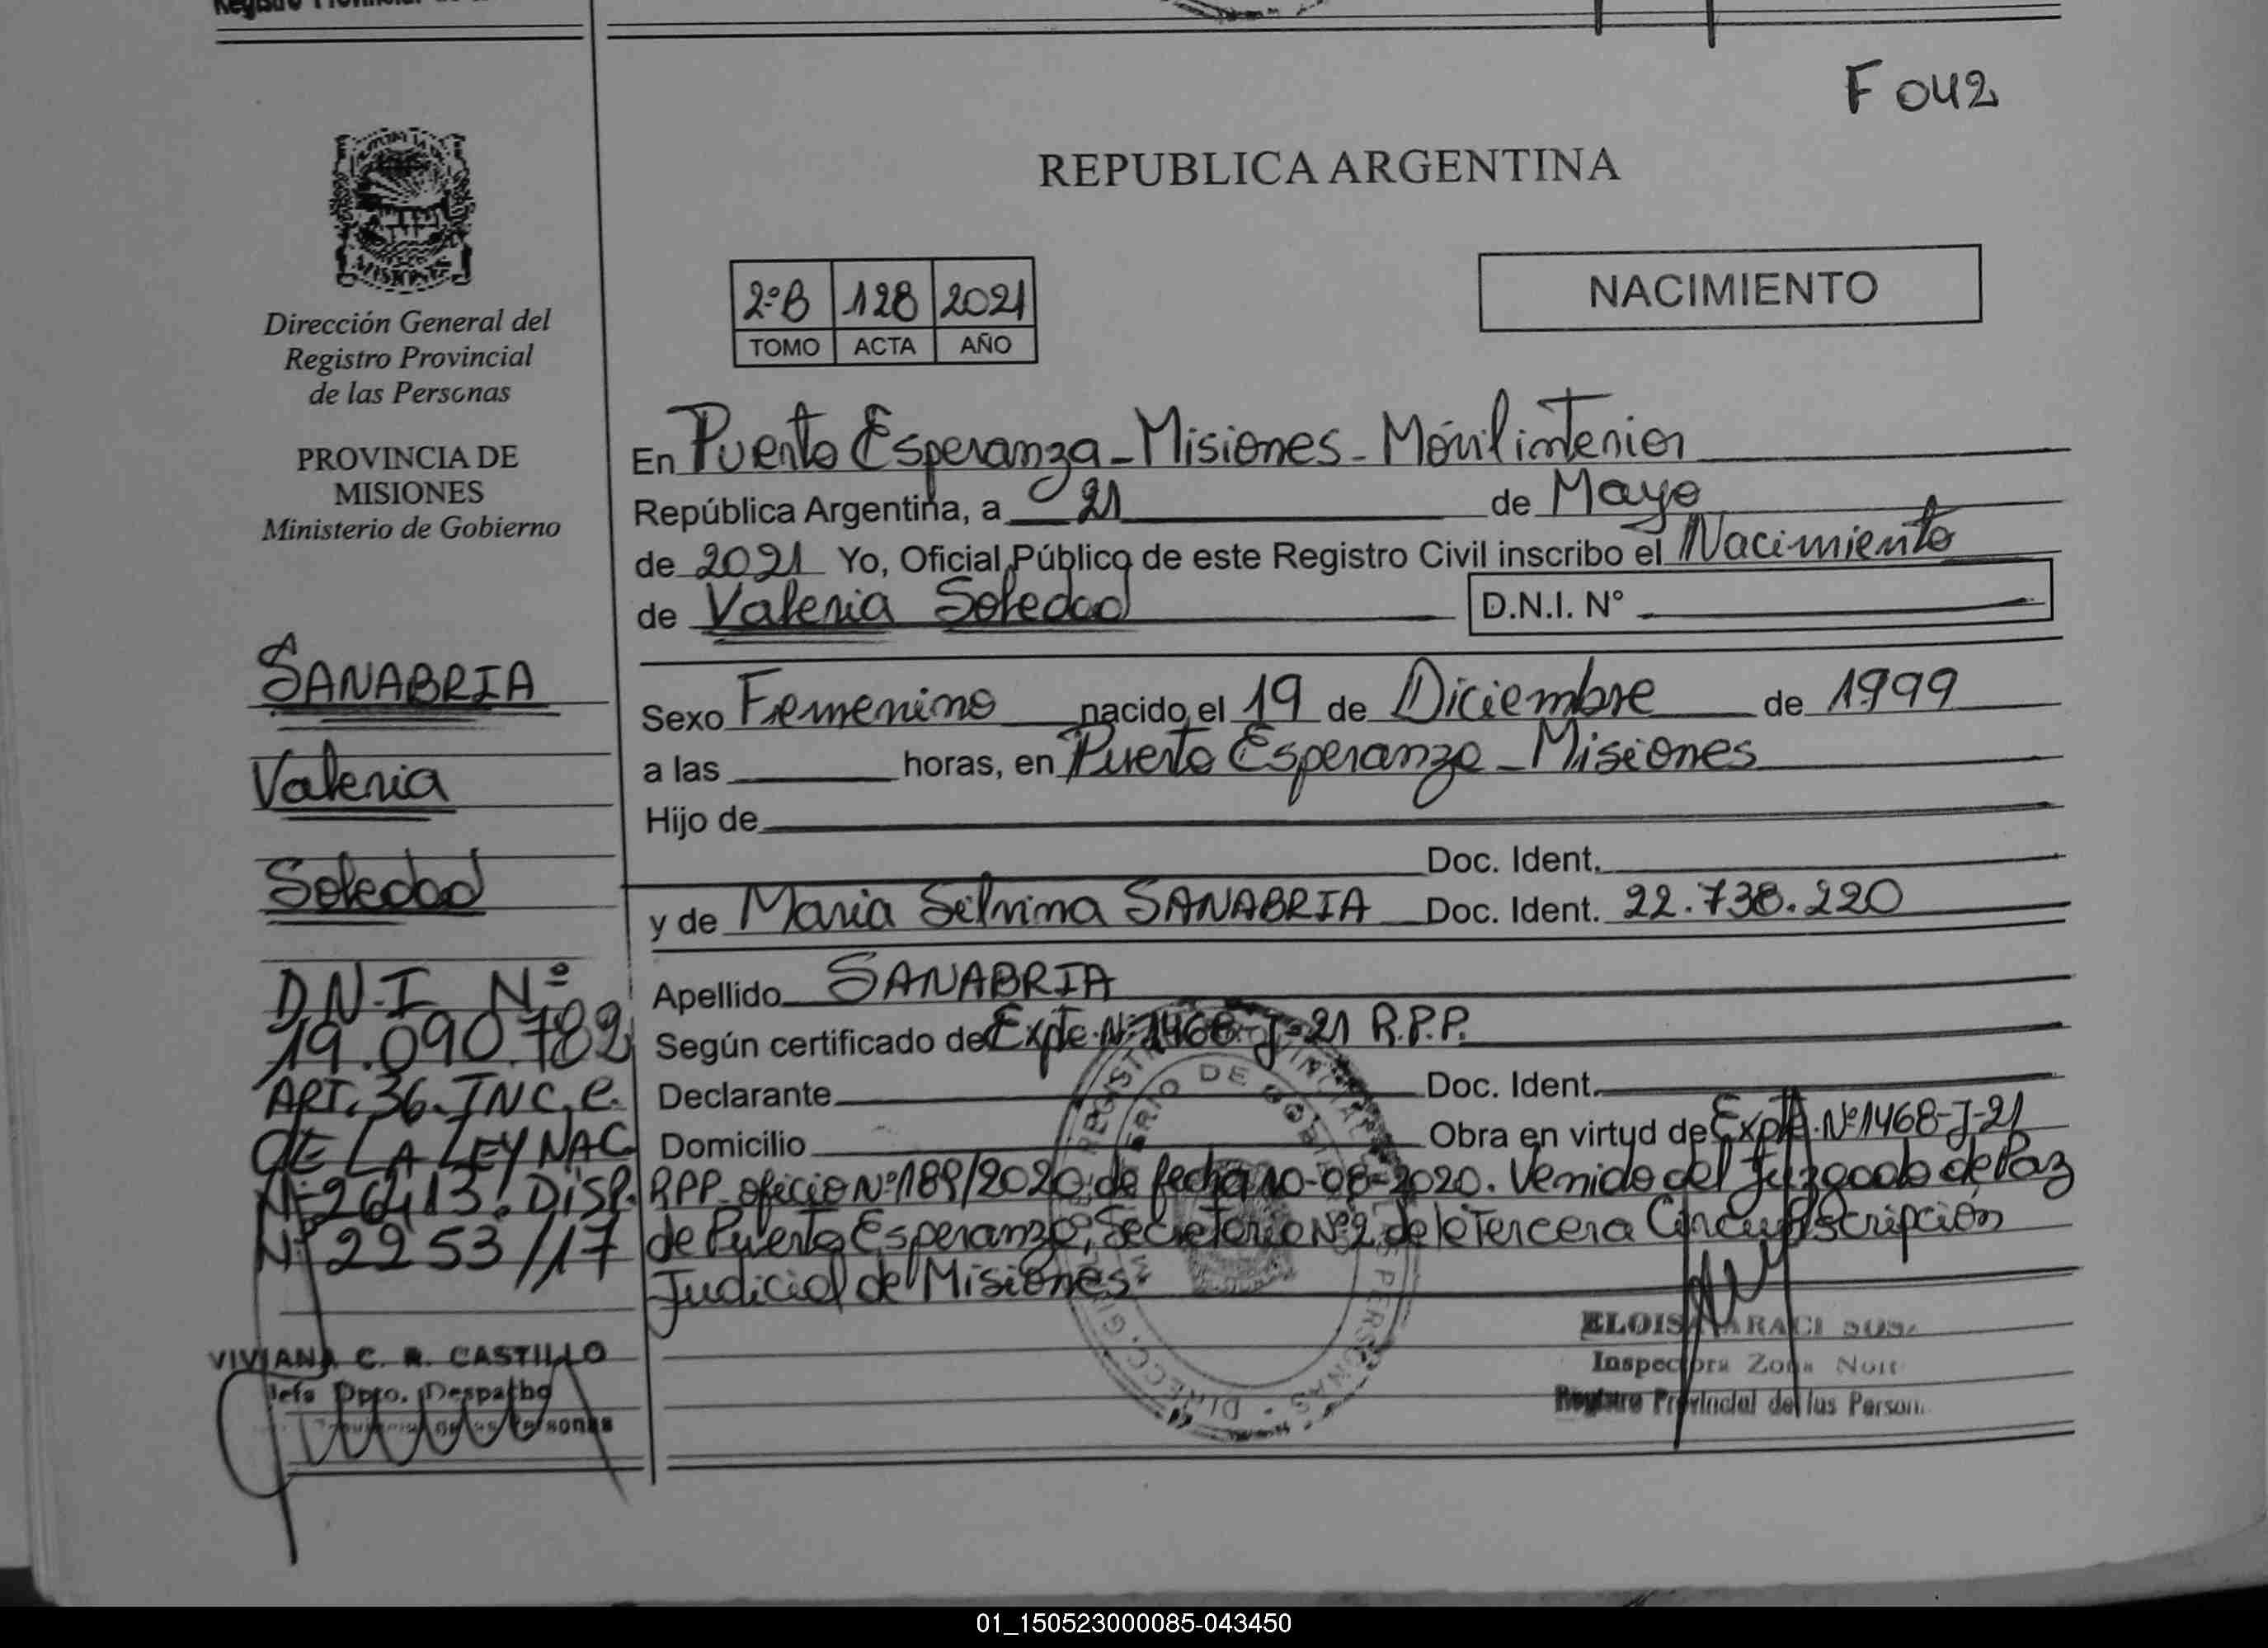 F 042
REPUBLICA ARGENTINA
2ºB 128 2021
TOMO ACTA AÑO
NACIMIENTO
Dirección General del
Registro Provincial
de las Personas
PROVINCIA DE
MISIONES
Ministerio de Gobierno
SANABRIA
Valeria
Soledad
D.N.I Nº
19.090.782
ART. 36. INC. e.
DE LA LEY NAC.
Nº 26413. DISP.
Nº 2253/17
VIVIANA C. R. CASTILLO
Jefa Dpto. Despacho
En Puerto Esperanza - Misiones - Móvil interior
República Argentina, a 21 de Mayo
de 2021 Yo, Oficial Público de este Registro Civil inscribo el Nacimiento
de Valeria Soledad D.N.I. Nº
Sexo Femenino nacido el 19 de Diciembre de 1999
a las horas, en Puerto Esperanza - Misiones
Hijo de
Doc. Ident.
y de Maria Silvina SANABRIA Doc. Ident. 22.738.220
Apellido SANABRIA
Según certificado de Expte. Nº 1468-J-21 R.P.P.
Declarante Doc. Ident.
Domicilio Obra en virtud de Expte. Nº 1468-J-21
RPP oficio Nº 189/2020 de fecha 10-08-2020. Venido del Juzgado de Paz
de Puerto Esperanza, Secretaria Nº 2 de la Tercera Circunscripción
Judicial de Misiones
Inspectora Zona
Registro Provincial de las
01_150523000085-043450